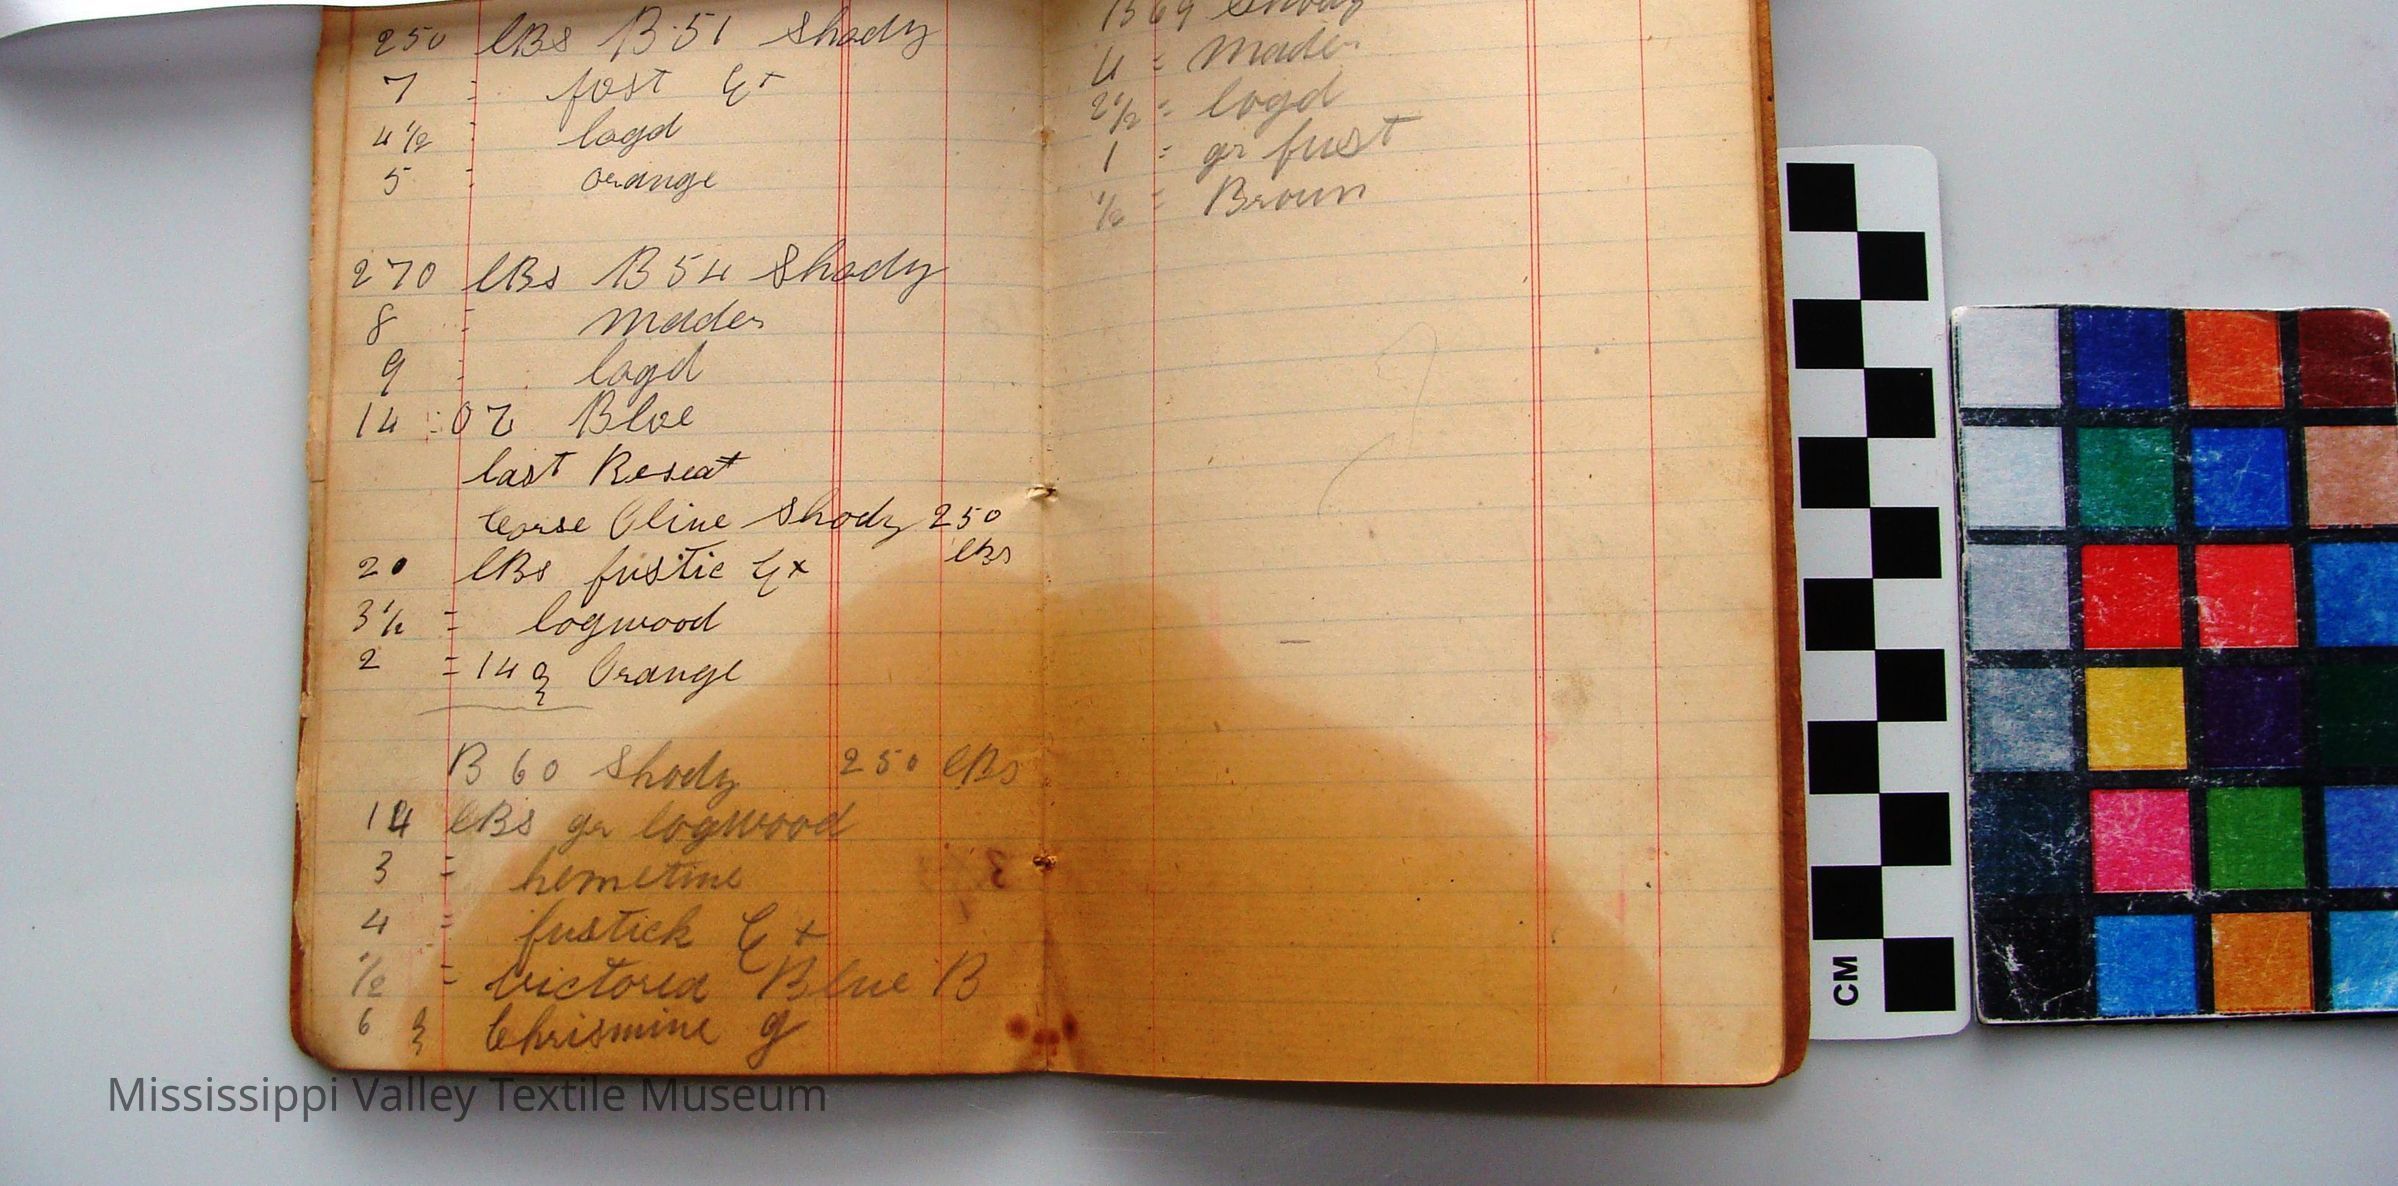 250 lBs B 51 Shody
7 = fost Ex
4 1/2 = logd
5 = orange
270 lBs B 54 Shody
8 = Mader
9 = logd
14 = oz Bloe
last Reseat
Corse Oline Shody 250
lBs
20 lBs fustic Ex
3 1/2 = logwood
2 = 14 Orange
B 60 Shody 250 lBs
14 lBs gr logwood
3 = hemetine
4 = fustick Ex
1/2 = Victored Blue B
6 Chrismine g
B 69 Shody
4 = Mader
2 1/2 = logd
1 = gr fust
1/2 = Broun
CM
Mississippi Valley Textile Museum